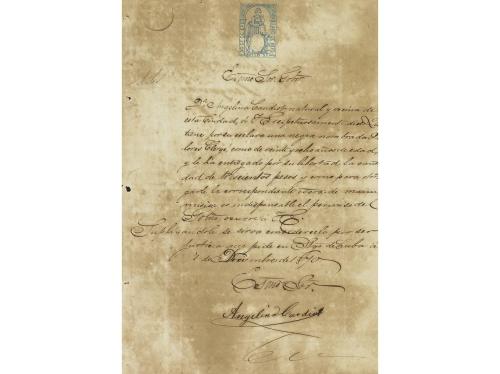 Exmo Sor. Gobr.
Da. Angelina Cardist natural y vecina de
esta Ciudad, á V.E. respetuosamente dice: Que
tiene por esclava una negra nombrada
como de veinte y ocho años de edad,
y le ha entregado por su libertad la canti
dad de pesos y como para otor
garle la correspondiente de manu
mision es indispensable el permiso de
ocurre á V.E.
Suplicandole se sirva concederlo por ser
justicia que pide en Stgo. de Cuba á
7 de Diciembre de 1870
Exmo. Sor.
Angelina Cardist